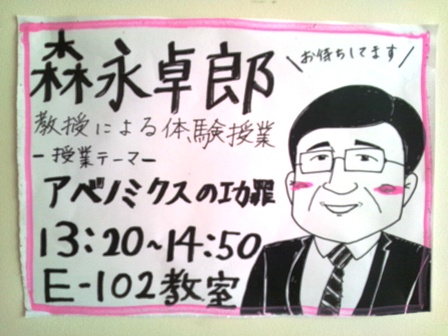 森永卓郎
\お待ちしてます/
教授による体験授業
-授業テーマ-
アベノミクスの功罪
13:20~14:50
E-102教室